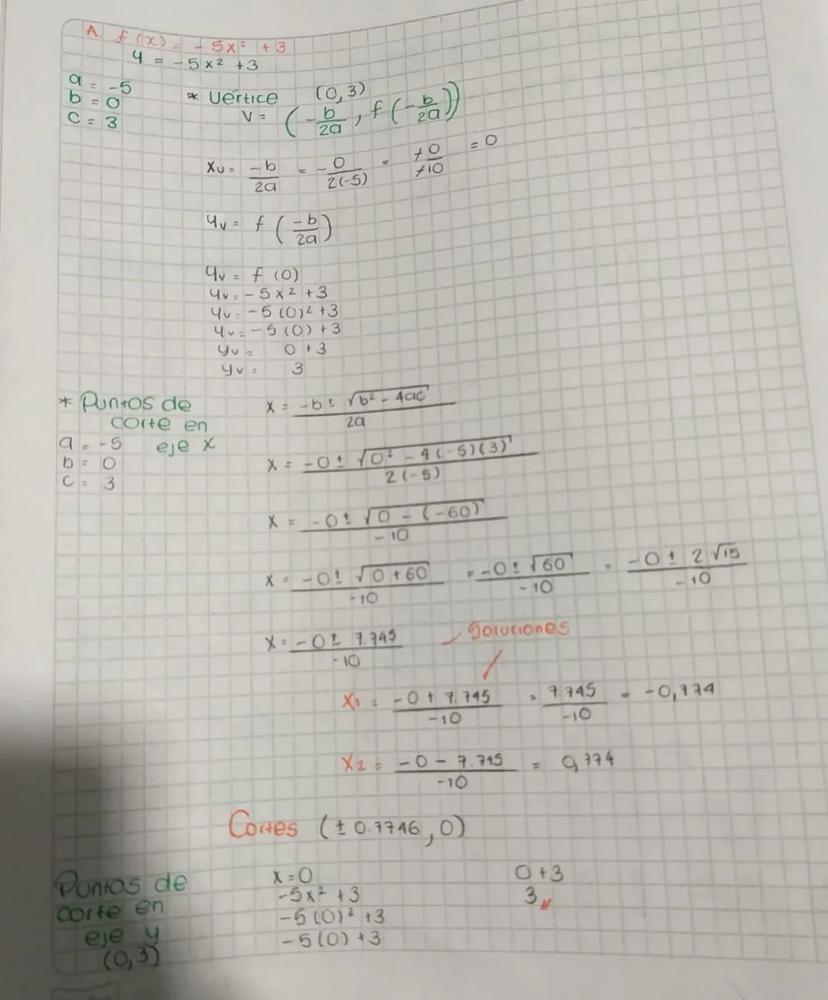 A. f(x) = -5x² + 3
y = -5x² + 3
a = -5
b = 0
c = 3
* Vertice (0,3)
V = (-b/2a, f(-b/2a))
xv = -b/2a = -0/2(-5) = +0/+10 = 0
yv = f(-b/2a)
yv = f(0)
yv = -5x² + 3
yv = -5(0)² + 3
yv = -5(0) + 3
yv = 0 + 3
yv = 3
* Puntos de corte en eje x
a = -5
b = 0
c = 3
x = -b ± √b² - 4ac / 2a
x = -0 ± √0² - 4(-5)(3) / 2(-5)
x = -0 ± √0 - (-60) / -10
x = -0 ± √0 + 60 / -10 = -0 ± √60 / -10 = -0 ± 2√15 / -10
x = -0 ± 7.745 / -10
Soluciones
x1 = -0 + 7.745 / -10 = 7.745 / -10 = -0,774
x2 = -0 - 7.745 / -10 = 0,774
Cortes (± 0.7746, 0)
Puntos de corte en eje y
(0,3)
x = 0
-5x² + 3
-5(0)² + 3
-5(0) + 3
0 + 3
3